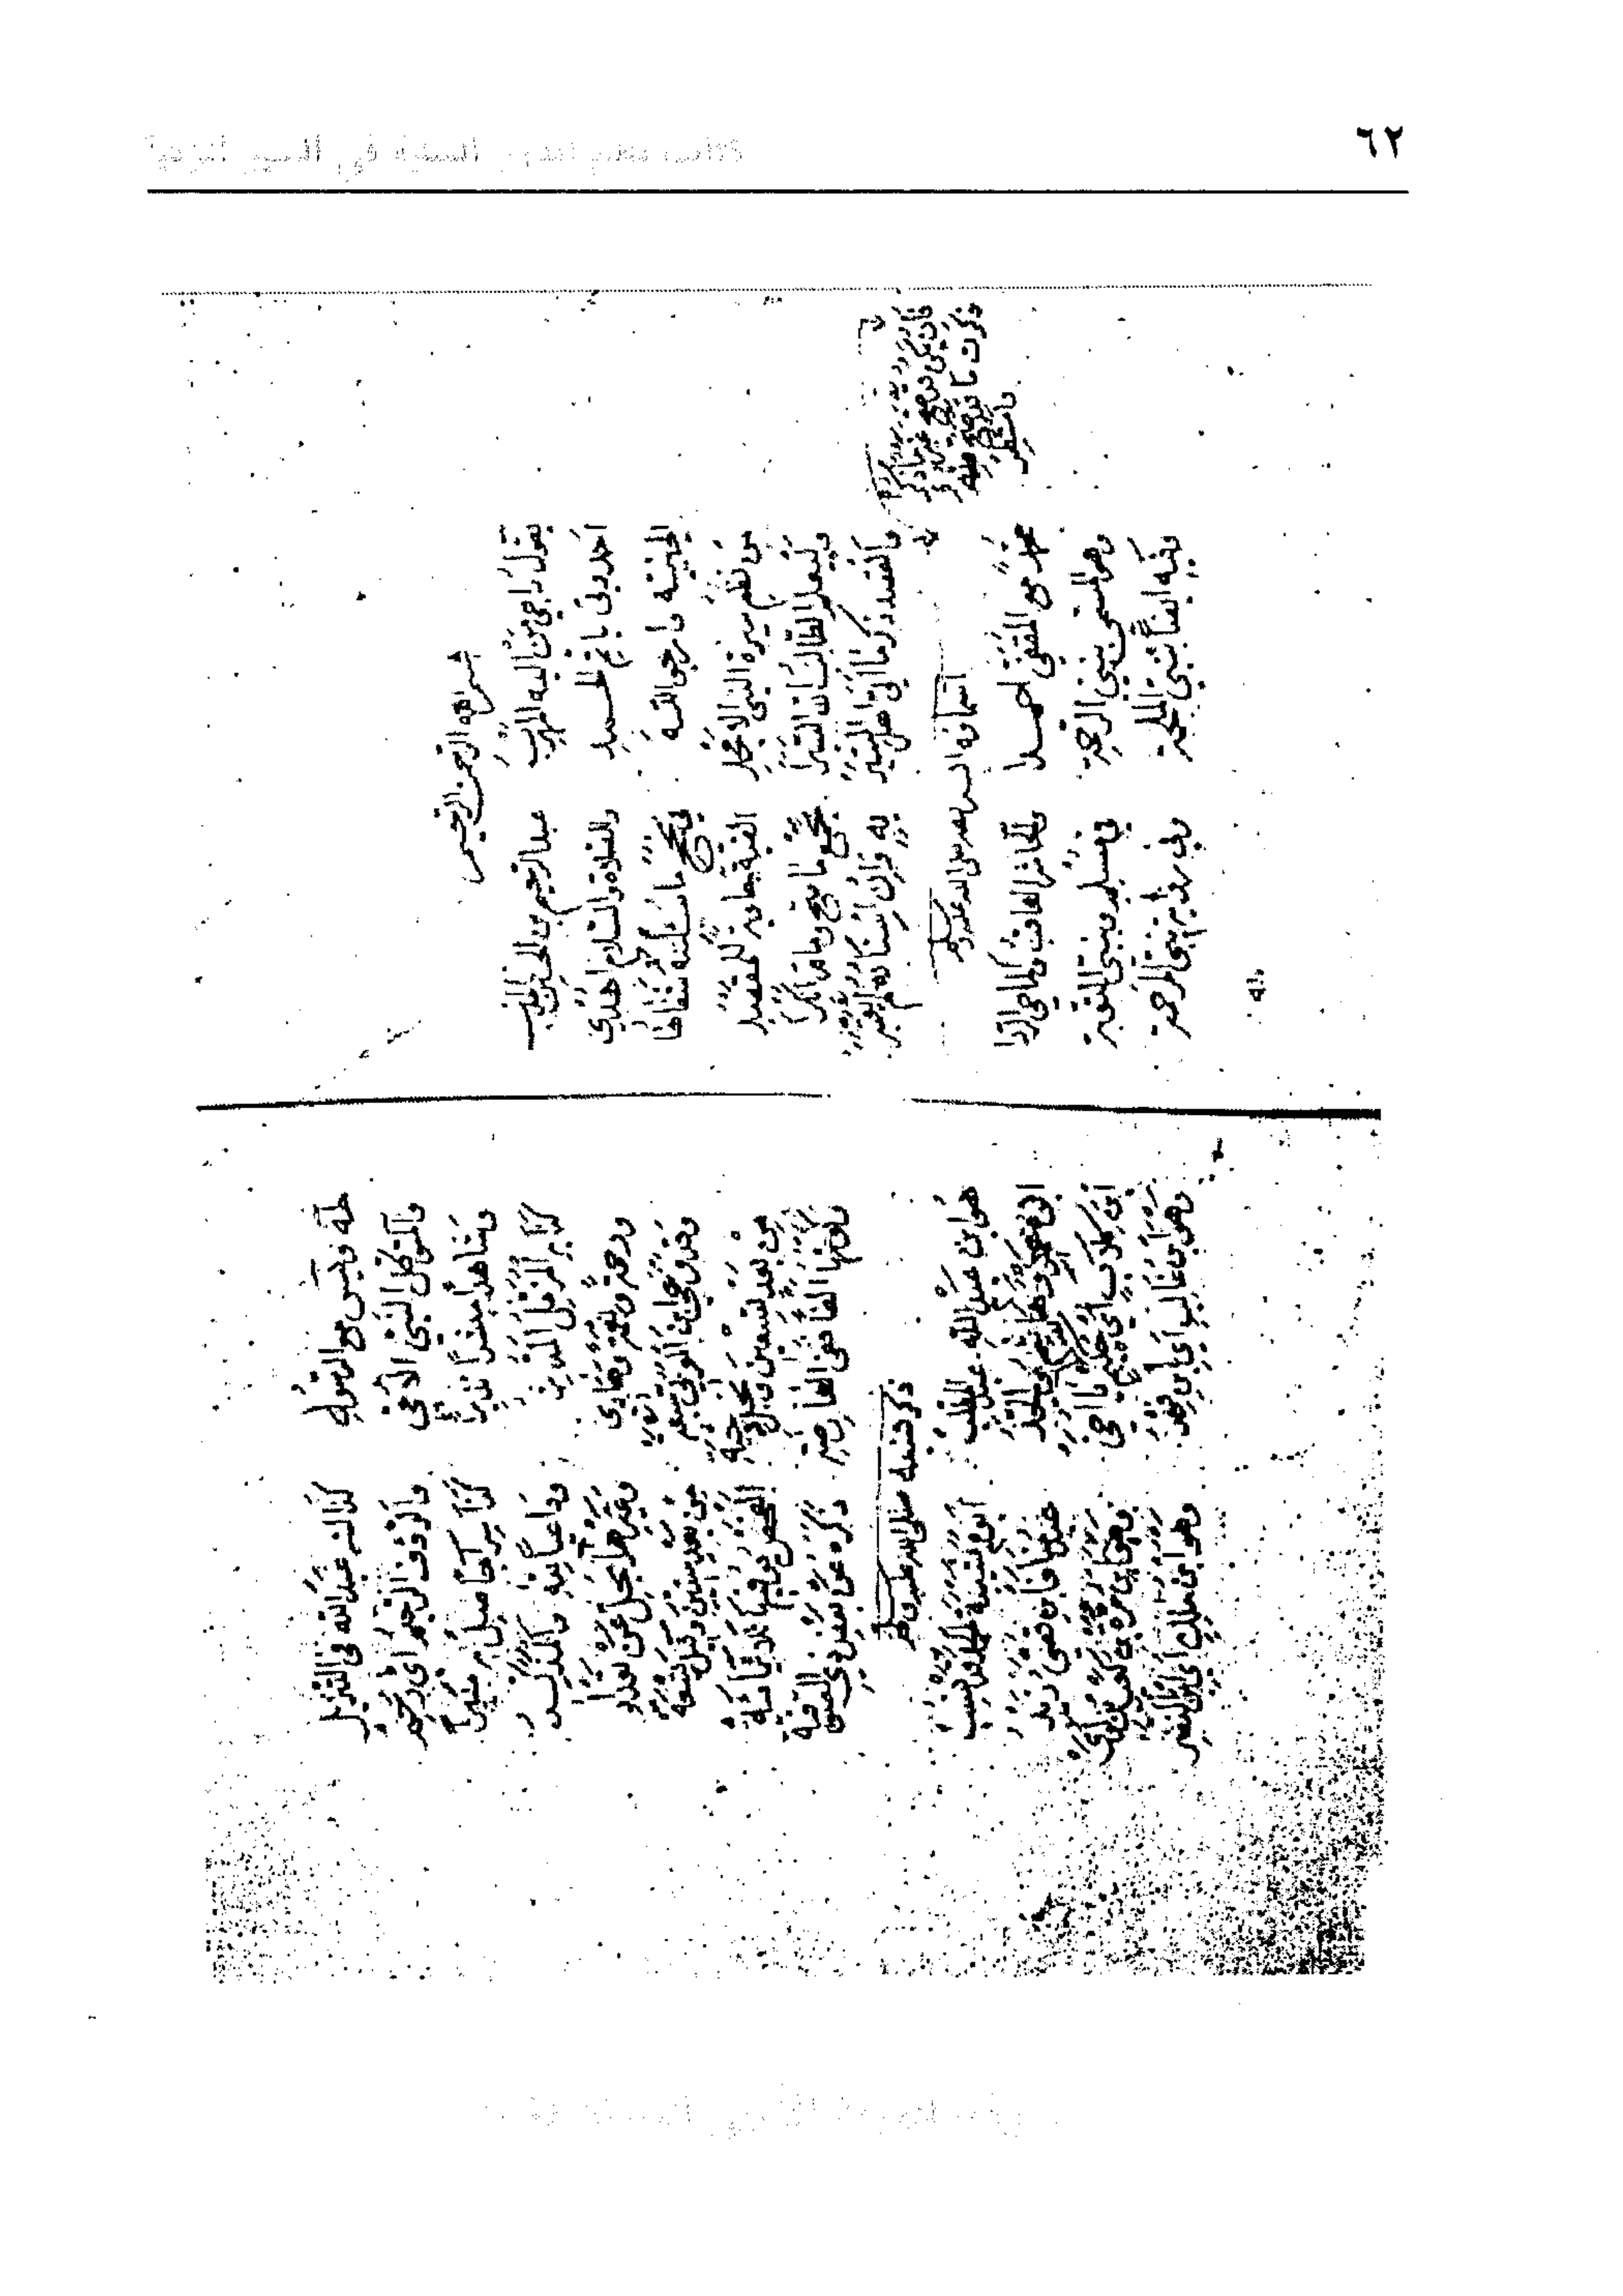 ٦٢
بسم الله الرحمن الرحيم
يقول راجي من اليه المهرب عبد الرحيم بن الحسين المذنب
احمد ربي باتم الحمد والصلاة والسلام اهدي
الى نبيه وارجو الله في نجح ما سئلته شفاها
من نظم سيرة النبي الامجد الفية حاوية للمقصد
وليعلم الطالب ان السيرا تجمع ما صح وما قد انكرا
والقصد ذكر ما اتى اهل السير به وان اسناده لم يعتبر
فان يكن قد صح غير ما ذكر
ذكرت ما قد صح منه
واستطر
اسماؤه صلى الله عليه وسلم
محمد مع المقفى احمدا والحاشر العاقب والماحي الردا
وهو المسمى بنبي الرحمة في مسلم وبنبي التوبة
وفيه ايضا بنبي الملحمة وفي رواية نبي المرحمة
طه ويس مع الرسول كذاك عبد الله في التنزيل
والمتوكل النبي الامي والرؤف الرحيم اي رحم
وشاهدا مبشرا نذيرا كذا سراجا صل به منيرا
كذا به المزمل المدثر وداعيا لله والمذكر
ورحمة ونعمة وهادي وغيرها تجل عن تعداد
وقد وعى ابن العربي سبعة من بعد ستين وقيل تسعة
من بعد تسعين ولابن دحية الفحص يوفيها ثلاثمائة
وكونها الفا ففي العارضة ذكره عن بعض ذي الصوفة
ذكر نسبه صلى الله عليه وسلم
هو ابن عبد الله عبد المطلب ابوه وهو شيبة الحمد نسب
ابوه عمرو هاشم والجد عبد مناف ابن قصي زيد
ابن كلاب اي حكيم يا اخي وهو ابن مرة بن كعب بن لؤي
وهو ابن غالب اي ابن فهر وهو ابن مالك اي ابن النضر